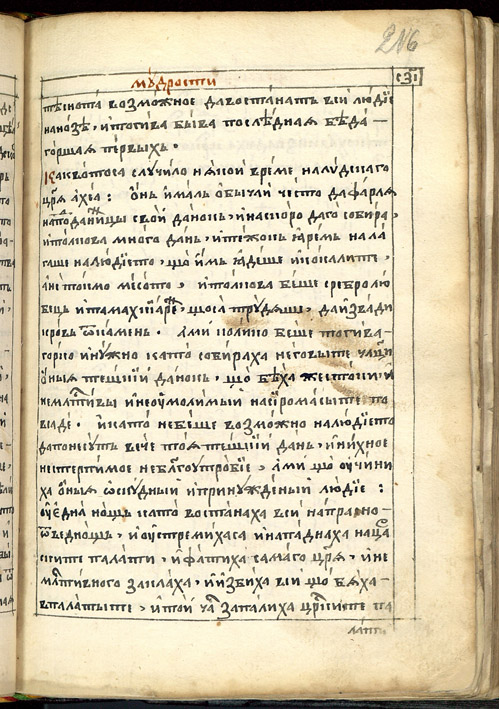 216
мꙋ́дрости
сзі
тѣснота возможное давостанатъ вси лю́дїе
нанозѣ, и тогива быва послѣдная бѣда
горшая первыхъ.
Каквотоса случи́ло нѧкои време налудскаго
цр҃ѧ а́хеа: о́нь има́лъ обычаи често дафарлѧ
наподаницы свои данокъ, и наскоро даго собира,
и толкова много дань, и тежокъ ꙗремъ нала
гаше налюдието, що имъ ꙗдеше и коскалите,
а не токмо месото, и толкова беше сребролю
бецъ
щоса трудѧше, даизвади
кровь ѿ камень. Ами колико беше тогива
горко и нужно като собираха неговыте
ѻ́ныѧ тешкїи данокъ, що бѣха жестоки, и
немлⷭ҇тивы и неоумолимыи насиромасыте по
вїаде. И като небеше возможно налюдїето
дапонесутъ вече тоѧ тешкїи дань, и нихное
нестерпимое небл҃гоутробїе, Ами що оучини
ха ѻ́ныѧ ѡскудныи и принужденыи людїе:
оу́една нощь като востанаха вси напрасно
ѿведнощъ, и оустремихаса и нападнаха нацрⷭ҇
ските палати, и фатиха самаго цр҃ѧ, и не
млⷭ҇тивного заклаха, и избиха вси що бѧха
впалатыте, и
запалиха црⷭ҇ките па
лати